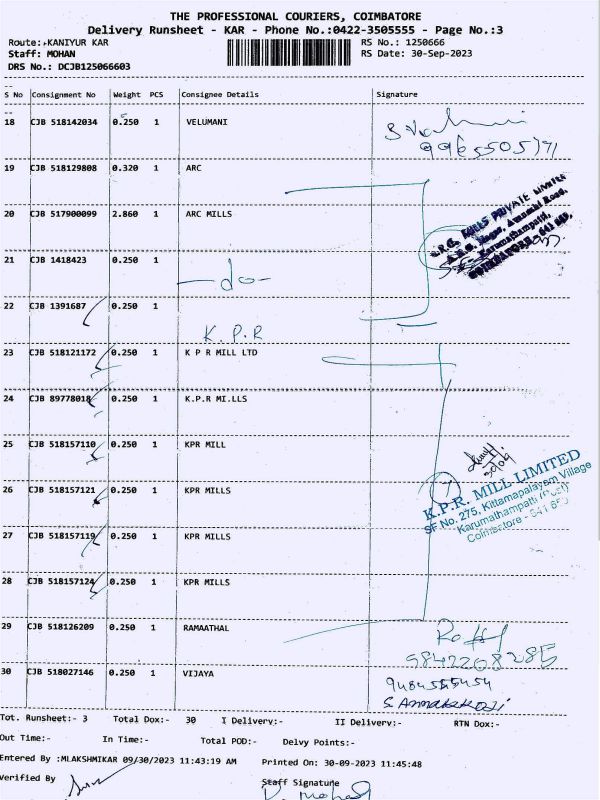 THE PROFESSIONAL COURIERS, COIMBATORE
Delivery Runsheet - KAR - Phone No.:0422-3505555 - Page No.:3
Route: KANIYUR KAR RS No.: 1250666
Staff: MOHAN RS Date: 30-Sep-2023
DRS No.: DCJB125066603
S No Consignment No Weight PCS Consignee Details Signature
18 CJB 518142034 0.250 1 VELUMANI
19 CJB 518129808 0.320 1 ARC
20 CJB 517900099 2.860 1 ARC MILLS
MILLS PRIVATE LIMITED
Karumathampatti,
21 CJB 1418423 0.250 1 -do-
22 CJB 1391687 0.250 1
K.P.R
23 CJB 518121172 0.250 1 K P R MILL LTD
24 CJB 89778018 0.250 1 K.P.R MI.LLS
25 CJB 518157110 0.250 1 KPR MILL
7
K.P.R. MILL LIMITED
SF No. 275, Kittampalayam Village
Karumathampatti
Coimbatore - 641
26 CJB 518157121 0.250 1 KPR MILLS
27 CJB 518157119 0.250 1 KPR MILLS
28 CJB 518157124 0.250 1 KPR MILLS
29 CJB 518126209 0.250 1 RAMAATHAL
9842208285
30 CJB 518027146 0.250 1 VIJAYA
Tot. Runsheet:- 3 Total Dox:- 30 I Delivery:- II Delivery:- RTN Dox:-
Out Time:- In Time:- Total POD:- Delvy Points:-
Entered By :MLAKSHMIKAR 09/30/2023 11:43:19 AM Printed On: 30-09-2023 11:45:48
Verified By Staff Signature